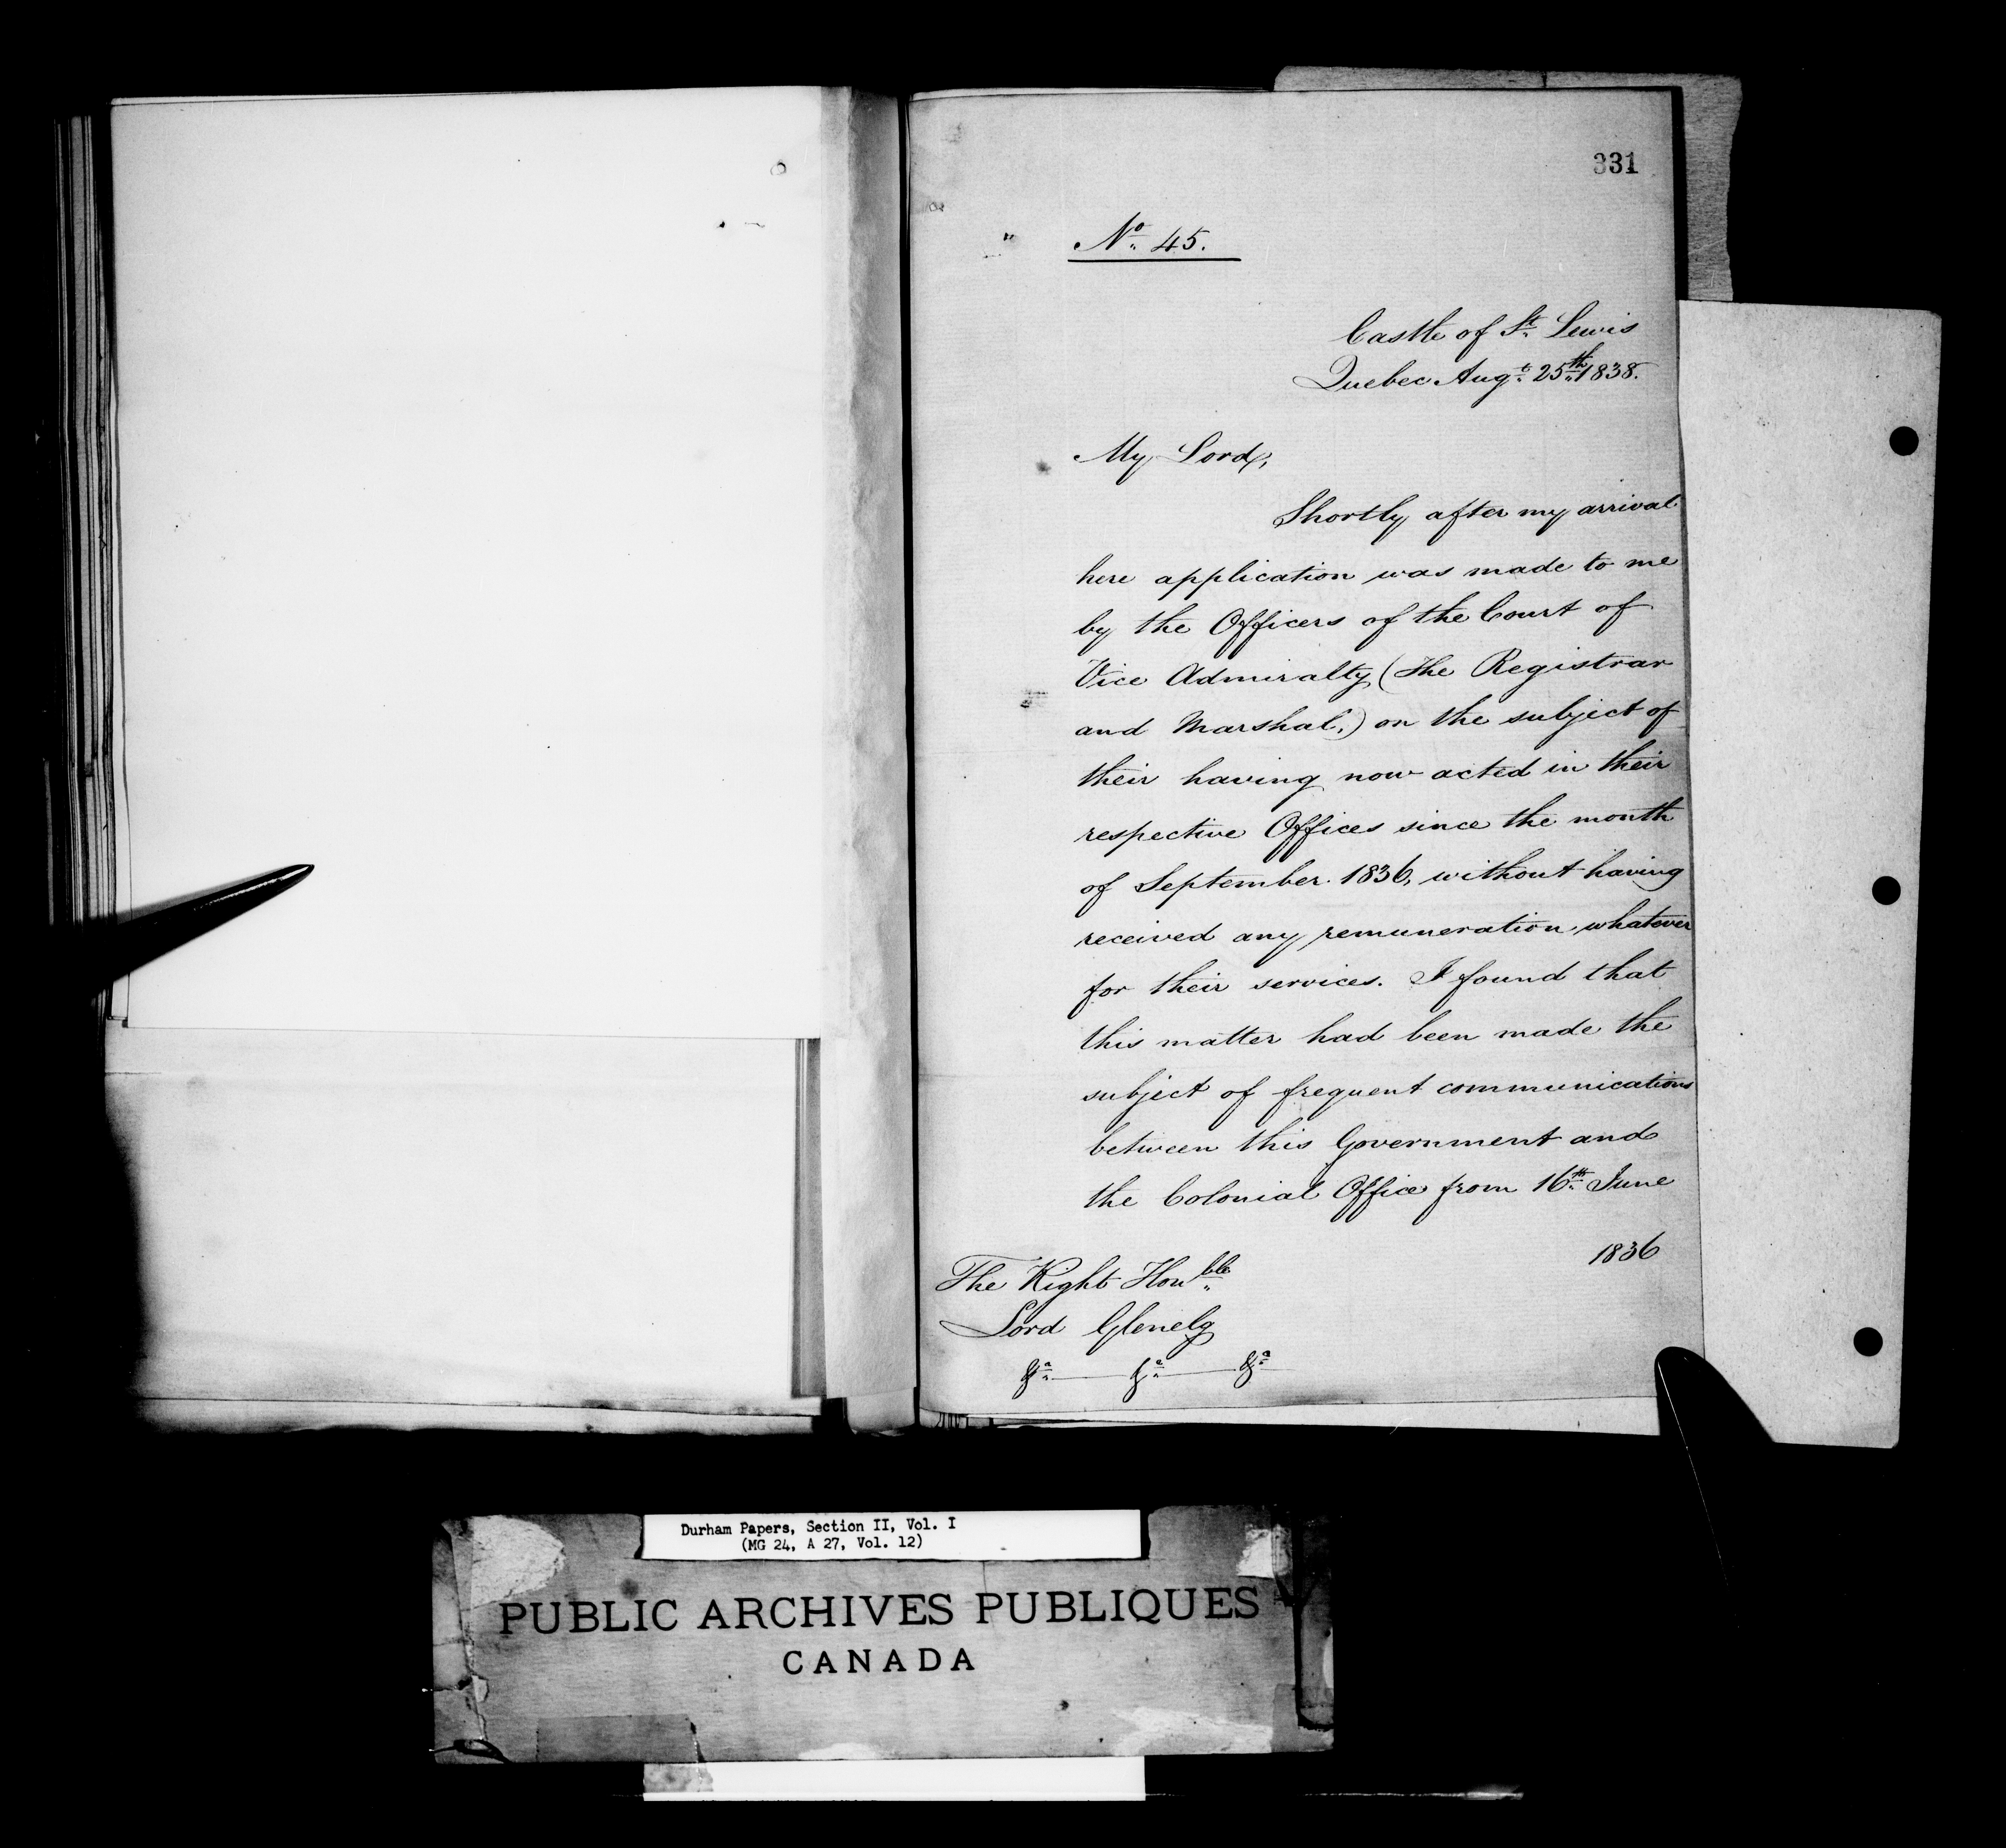 331
No. 45.
Castle of St. Lewis
Quebec Augt. 25th 1838.
My Lord,
Shortly after my arrival
here application was made to me
by the Officers of the Court of
Vice Admiralty (the Registrar
and Marshal,) on the subject of
their having now acted in their
respective Offices since the month
of September 1836, without having
received any remuneration whatever
for their services. I found that
this matter had been made the
subject of frequent communications
between this Government and
the Colonial Office from 16th. June
1836
The Right Honble.
Lord Glenelg
&a. &a. &a.
Durham Papers, Section II, Vol. I
(MG 24, A 27, Vol. 12)
PUBLIC ARCHIVES PUBLIQUES
CANADA